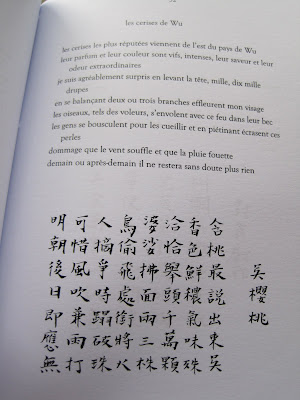 les cerises de Wu
les cerises les plus réputées viennent de l'est du pays de Wu
leur parfum et leur couleur sont vifs, intenses, leur saveur et leur
odeur extraordinaires
je suis agréablement surpris en levant la tête, mille, dix mille
drupes
en se balançant deux ou trois branches effleurent mon visage
les oiseaux, tels des voleurs, s'envolent avec ce feu dans leur bec
les gens se bousculent pour les cueillir et en piétinant écrasent ces
perles
dommage que le vent souffle et que la pluie fouette
demain ou après-demain il ne restera sans doute plus rien
吳櫻桃
含桃最說出東吳
香色鮮穠氣味殊
洽恰舉頭千萬顆
婆娑拂面兩三株
鳥偷飛處銜將火
人摘爭時蹋破珠
可惜風吹兼雨打
明朝後日即應無